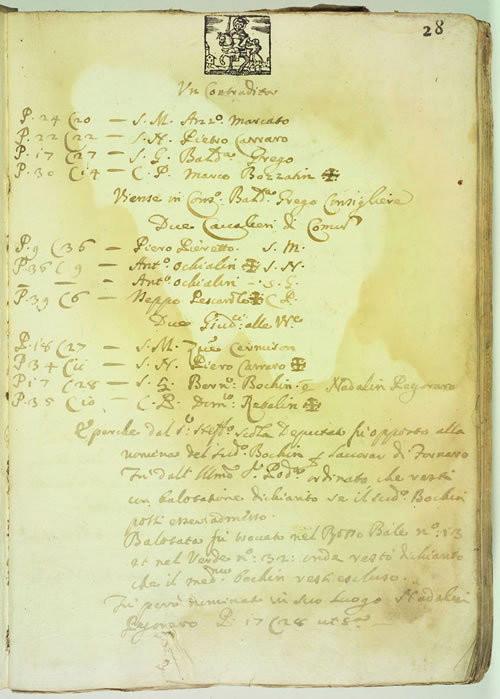 28
Un Contraditor
P. 24 C 20 — S. M. Anzo. Marcato
P. 22 C 22 — S. N. Pietro Carraro
P. 17 C 27 — S. G. Bald.a Grego
P. 30 C 14 — C. P. Marco Bozzatin ✠
Viense in Cons.o Bald.a Grego Consigliere
Due Cavalieri di Comun
P. 9 C 36 — Piero Pieretto S. M.
P. 36 C 9 — Ant.o ochialin ✠ S. N.
— — — Ant.o ochialin — S. G.
P. 39 C 6 — ✠ C. P.
Due alle
P. 18 C 27 — S. M.
P. 34 C 11 — S. N. Piero Carraro ✠
P. 17 C 28 — S. G. Bern.o Bochin e Nadalin Pegoraro
P. 35 C 10 — C. P. Dom.o ✠
E perche dal S.r Stess.o Deputato fu opposto alla
nomina del sud.o Bochin di Fornaro
Fu dall' Illmo S.r Pod.a ordinato che resti
con balotatione dichiarito se il sud.o Bochin
possi esser admisso.
Balotata fu trovato nel Bale n.o 13
et nel Verde n.o 32: onde restò dichiarito
che il med.mo bochin resti escluso.
Fu però nominato in suo luogo Nadalin
Pegoraro P. 17 C 28 ut